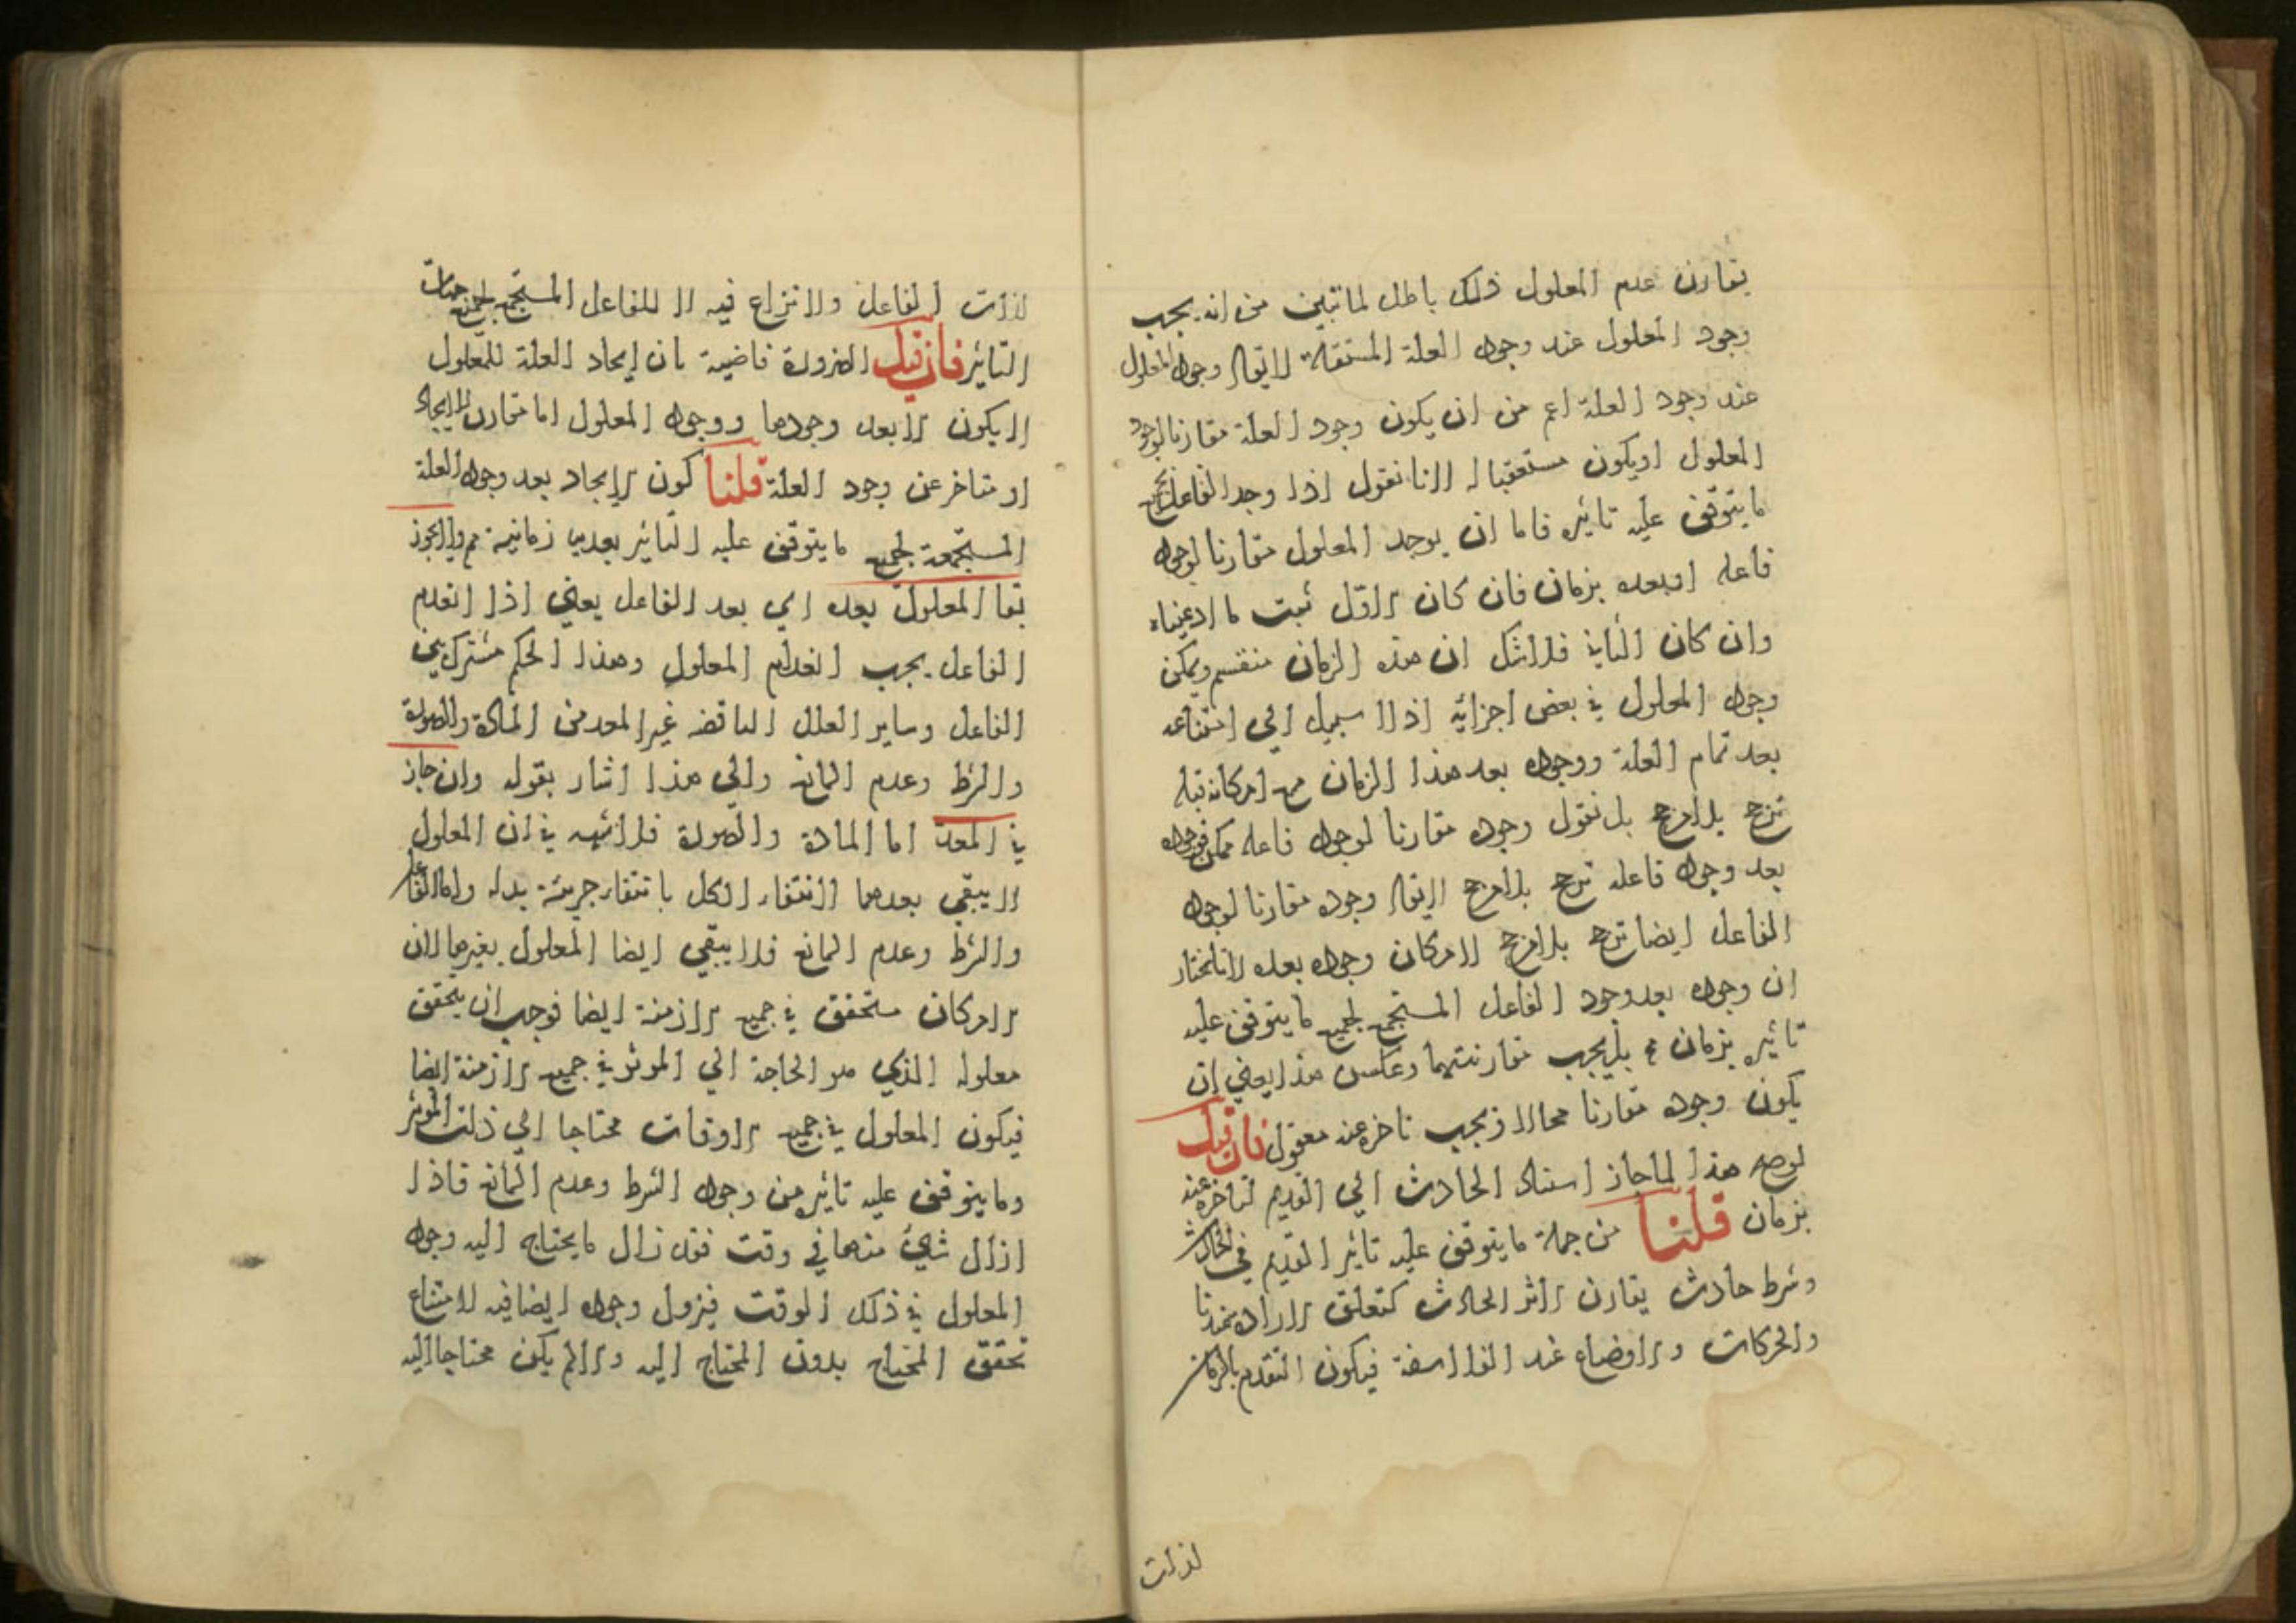 يقارن عدم المعلول ذلك باطل لما تبين من انه يجب
وجود المعلول عند وجود العلة المستقلة لا يقال وجود المعلول
عند وجود العلة اعم من ان يكون وجود العلة مقارنا لوجود
المعلول او يكون مستعقبا له لانا نقول اذا وجد الفاعل بجميع
ما يتوقف عليه تاثيره فاما ان يوجد المعلول مقارنا لوجود
فاعله او بعده بزمان فان كان الاول ثبت ما ادعيناه
وان كان الثاني فلا شك ان هذه الزمان منقسم ويمكن
وجود المعلول في بعض اجزائه اذ لا سبيل الي امتناعه
بعد تمام العلة ووجوده بعد هذا الزمان مع امكانه قبله
ترجح بلا مرجح بل نقول وجوده مقارنا لوجود فاعله ممكن فوجوده
بعد وجود فاعله ترجح بلا مرجح لا يقال وجوده مقارنا لوجود
الفاعل ايضا ترجح بلا مرجح لامكان وجوده بعده لانا نختار
ان وجوده بعد وجود الفاعل المستجمع لجميع ما يتوقف عليه
تاثيره بزمان مح بل يجب مقارنتهما وعكس هذا يعني ان
يكون وجوده مقارنا محالا ويجب تاخره عنه معقول فان قيل
لو صح هذا لما جاز استناد الحادث الي القديم لتاخره عنه
بزمان قلنا من جملة ما يتوقف عليه تاثير القديم في الحادث
وشرط حادث يقارن الاثر الحادث كتعلق الارادة عندنا
والحركات والاوضاع عند الفلاسفة فيكون التقدم بالزمان
لذات
لذات الفاعل ولا نزاع فيه لا للفاعل المستجمع لجميع جهات
التاثير فان قيل الضرورة قاضية بان ايجاد العلة للمعلول
لا يكون الا بعد وجودها ووجود المعلول اما مقارن للايجاد
او متاخر عن وجود العلة قلنا كون الايجاد بعد وجود العلة
المستجمعة لجميع ما يتوقف عليه التاثير بعدية زمانية مم ولا يجوز
بقا المعلول بعده اي بعد الفاعل يعني اذا انعدم
الفاعل يجب انعدام المعلول وهذا الحكم مشترك بين
الفاعل وساير العلل الناقصه غير المعد من المادة والصورة
والشرط وعدم المانع والي هذا اشار بقوله وان جاز
في المعد اما المادة والصورة فلا شبهه في ان المعلول
لا يبقي بعدهما لانتفاء الكل بانتفاء جزئه بدله واما الفاعل
والشرط وعدم المانع فلا يبقي ايضا المعلول بغيرها لان
الامكان متحقق في جميع الازمنة ايضا فوجب ان يتحقق
معلوله الذي هو الحاجة الي الموثر في جميع الازمنة ايضا
فيكون المعلول في جميع الاوقات محتاجا الي ذلك الموثر
وما يتوقف عليه تاثيره من وجود الشرط وعدم المانع فاذا
ازال شيئ منها في وقت فقد زال ما يحتاج اليه وجود
المعلول في ذلك الوقت فيزول وجوده ايضا فيه لامتناع
تحقق المحتاج بدون المحتاج اليه والا لم يكن محتاجا اليه